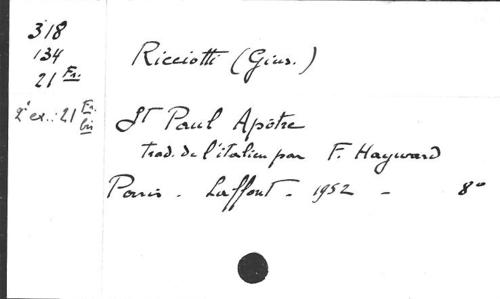 318
134
21 Fr.
2e ex. : 21 Fr. bis
Ricciotti (Gius.)
St Paul Apôtre
trad. de l'italien par F. Hayward
Paris - Laffont - 1952 - 8°